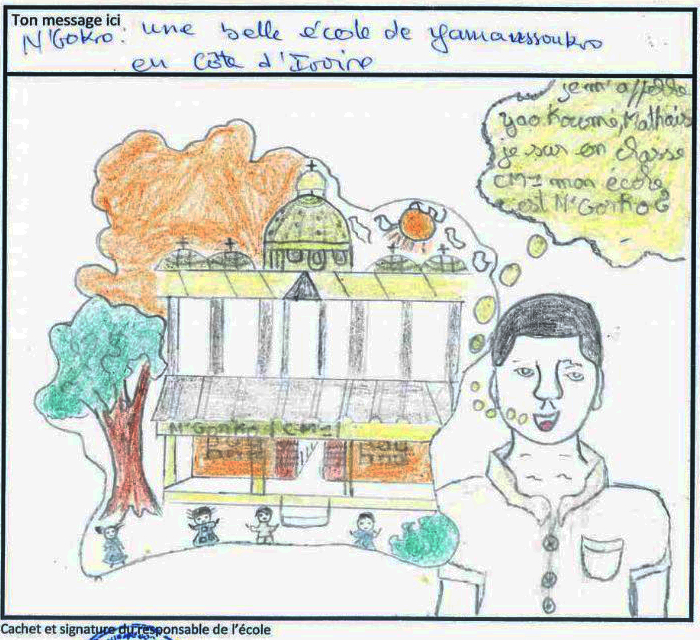 Ton message ici
N'Gokro : une belle école de Yamoussoukro
en Côte d'Ivoire
je m'appelle
Yao Kouamé, Mathais
je suis en classe
CM1 mon école
c'est N'Gokro
N'Gokro CM1
Cachet et signature du responsable de l'école